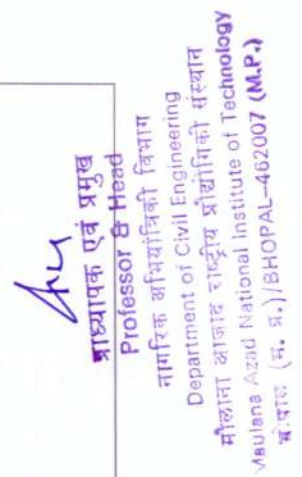 प्राध्यापक एवं प्रमुख
Professor & Head
नागरिक अभियांत्रिकी विभाग
Department of Civil Engineering
मौलाना आजाद राष्ट्रीय प्रौद्योगिकी संस्थान
Maulana Azad National Institute of Technology
(म. प्र.)/BHOPAL–462007 (M.P.)